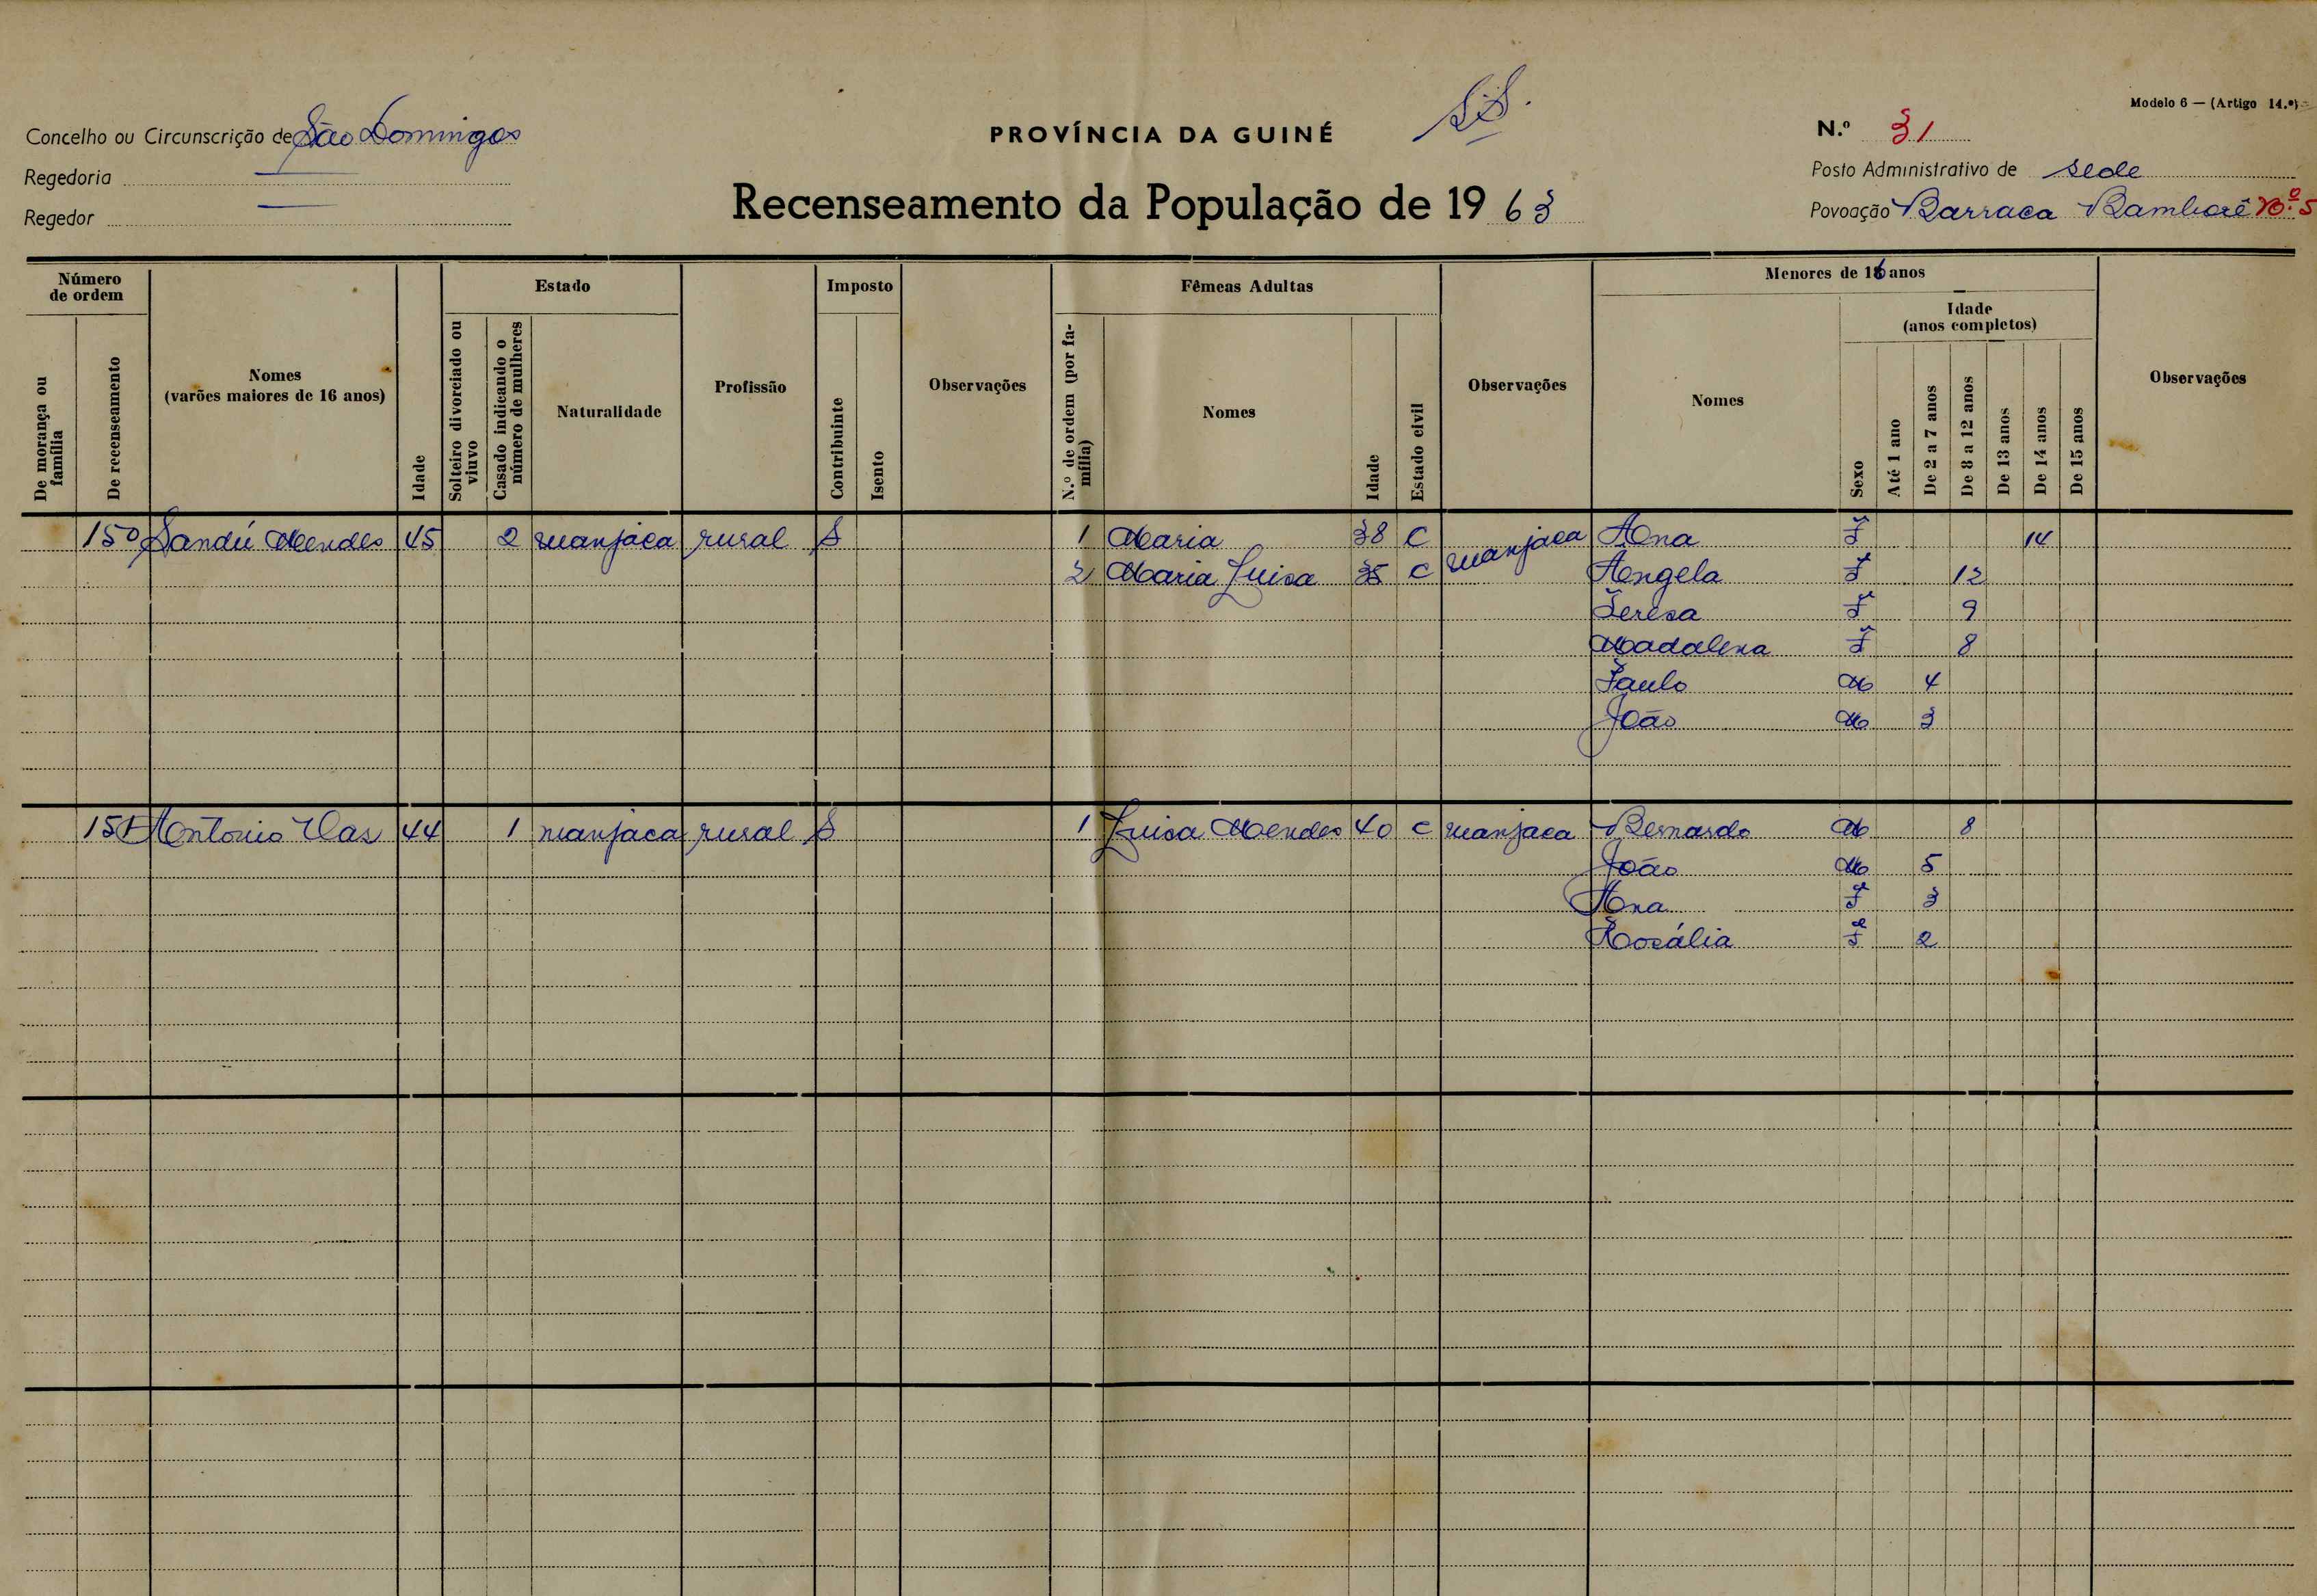 Modelo 6 — (Artigo 14.º)
Concelho ou Circunscrição de São Domingos
PROVÍNCIA DA GUINÉ
N.º 31
Regedoria —
Posto Administrativo de sede
Regedor —
Recenseamento da População de 1963
Povoação Barraca Nº 5
Número de ordem
De morança ou família
De recenseamento
Nomes
(varões maiores de 16 anos)
Idade
Estado
Solteiro divorciado ou viuvo
Casado indicando o número de mulheres
Naturalidade
Profissão
Imposto
Contribuinte
Isento
Observações
Fêmeas Adultas
N.º de ordem (por família)
Nomes
Idade
Estado civil
Observações
Menores de 16 anos
Nomes
Sexo
Idade
(anos completos)
Até 1 ano
De 2 a 7 anos
De 8 a 12 anos
De 13 anos
De 14 anos
De 15 anos
Observações
150 Sandú Mendes 45 2 manjaca rural S 1 Maria 38 C manjaca Ana F 14
2 Maria Luisa 35 C Angela F 12
Teresa F 9
Madalena F 8
Paulo M 4
João M 3
151 Antonio Vas 44 1 manjaca rural S 1 Luisa Mendes 40 C manjaca Bernardo M 8
João M 5
Ana F 3
Rosália F 2